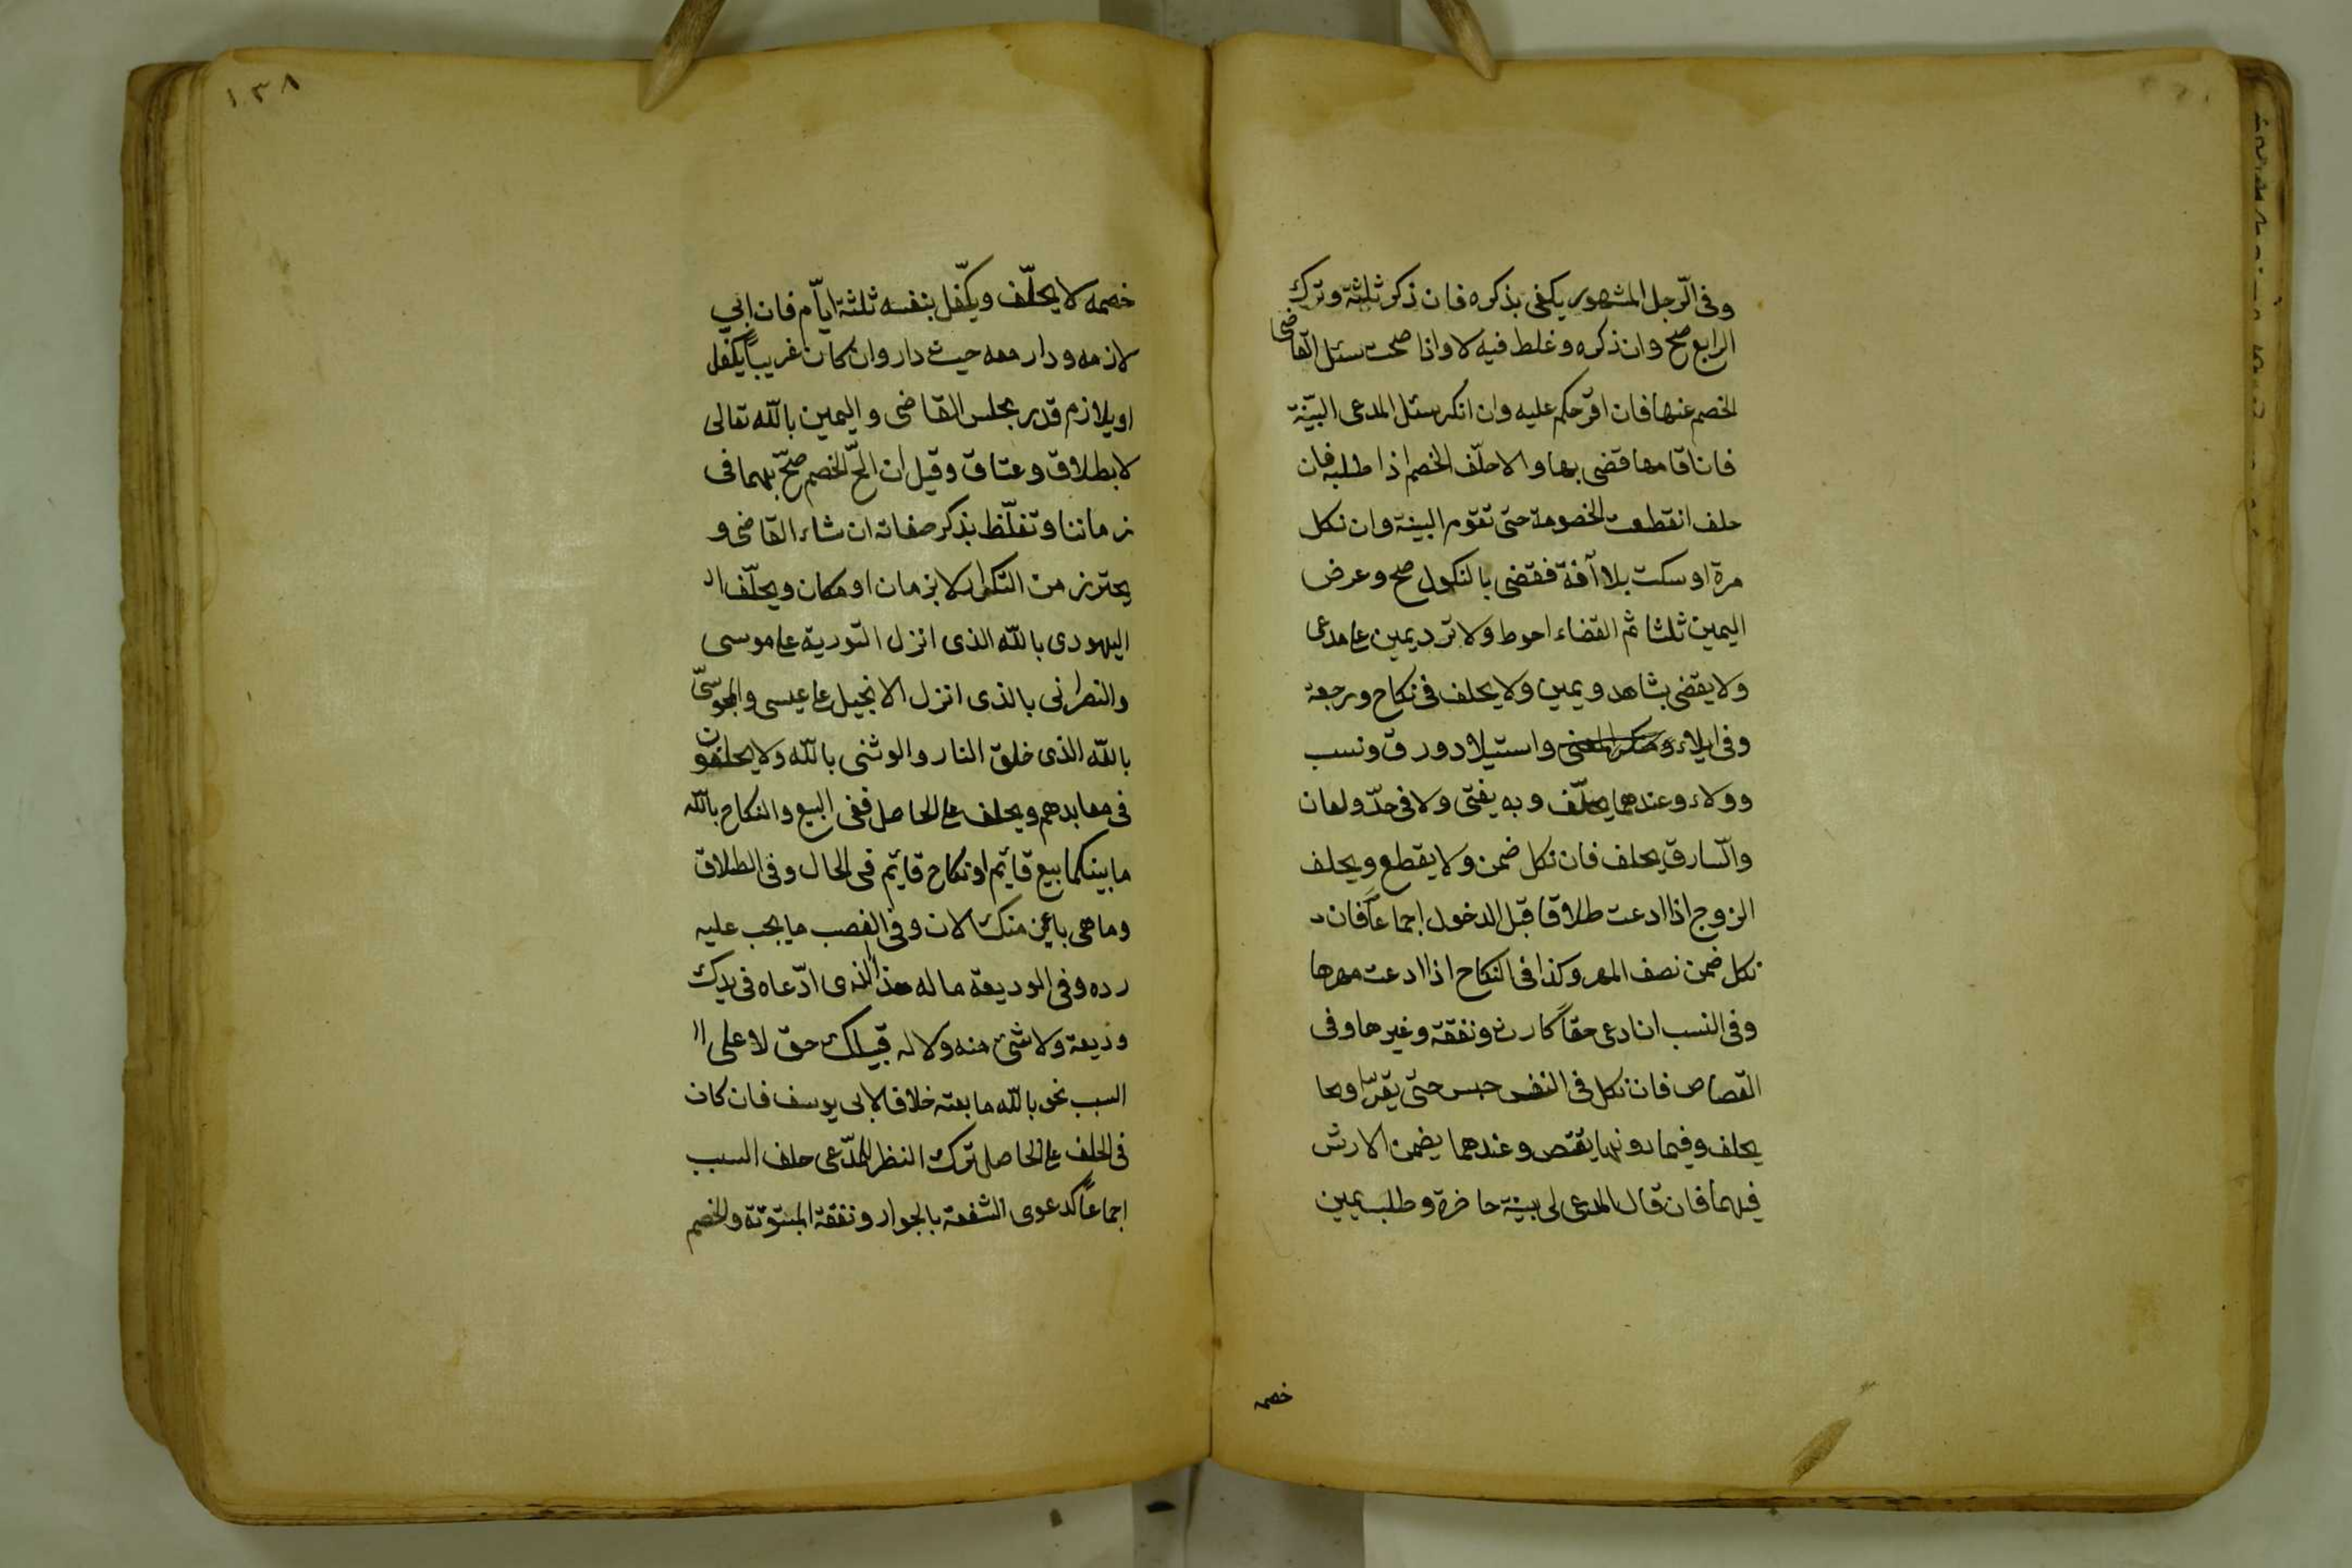 وفى الرّجل المشهور يكفى بذكره فان ذكر ثلثة وترك
الرابع صح وان ذكره وغلط فيه لا واذا صحت سئل القاضى
الخصم عنها فان اقرّ حكم عليه وان انكر سئل المدعى البيّنة
فان اقامها قضى بها والا حلّف الخصم اذا طلبه فان
حلف انقطعت الخصومة حتى تقوم البينة وان نكل
مرة او سكت بلا آفة فقضى بالنكول صح وعرض
اليمين ثلثا ثم القضاء احوط ولا ترد يمين على مدعى
ولا يقضى بشاهد ويمين ولا يحلف فى نكاح ورجعة
وفى ايلاء واستيلاد ورق ونسب
وولاء وعندهما يحلّف وبه يفتى ولا فى حدّ ولعان
والسّارق يحلف فان نكل ضمن ولا يقطع ويحلف
الزوج اذا ادعت طلاقا قبل الدخول اجماعاً فان
نكل ضمن نصف المهر وكذا فى النكاح اذا ادعت مهرها
وفى النسب ان ادعى حقاً كارث ونفقة وغيرها وفى
القصاص فان نكل فى النفس حبس حتى يقرّ او
يحلف وفيما دونها يقتص وعندهما يضمن الارش
فيهما فان قال المدعى لى بينة حاضرة وطلب يمين
خصمه
١٣٨
خصمه لا يحلّف ويكفّل بنفسه ثلثة ايّام فان ابى
لازمه ودار معه حيث دار وان كان غريباً يكفّل
او يلازم قدر مجلس القاضى واليمين باللّه تعالى
لا بطلاق وعتاق وقيل ان الحّ الخصم صحّ بهما فى
زماننا وتغلّظ بذكر صفاته ان شاء القاضى و
يحترز من التكرار لا بزمان او مكان ويحلّف ا
اليهودى باللّه الذى انزل التورية على موسى
والنصرانى بالذى انزل الانجيل على عيسى والمجوسىّ
باللّه الذى خلق النار والوثنى باللّه ولا يحلفون
فى معابدهم ويحلف على الحاصل ففى البيع والنكاح باللّه
ما بينكما بيع قايم او نكاح قايم فى الحال وفى الطلاق
وما هى باين منك الان وفى الغصب ما يجب عليه
رده وفى الوديعة ما له هذا الذى ادّعاه فى يدك
وديعة ولا شئ منه ولا له قبلك حق لا على ا
السبب نحو باللّه ما بعته خلافا لابى يوسف فان كان
فى الحلف على الحاصل ترك النظر للمدّعى حلف السبب
اجماعاً كدعوى الشفعة بالجوار ونفقة المبتوتة والخصم